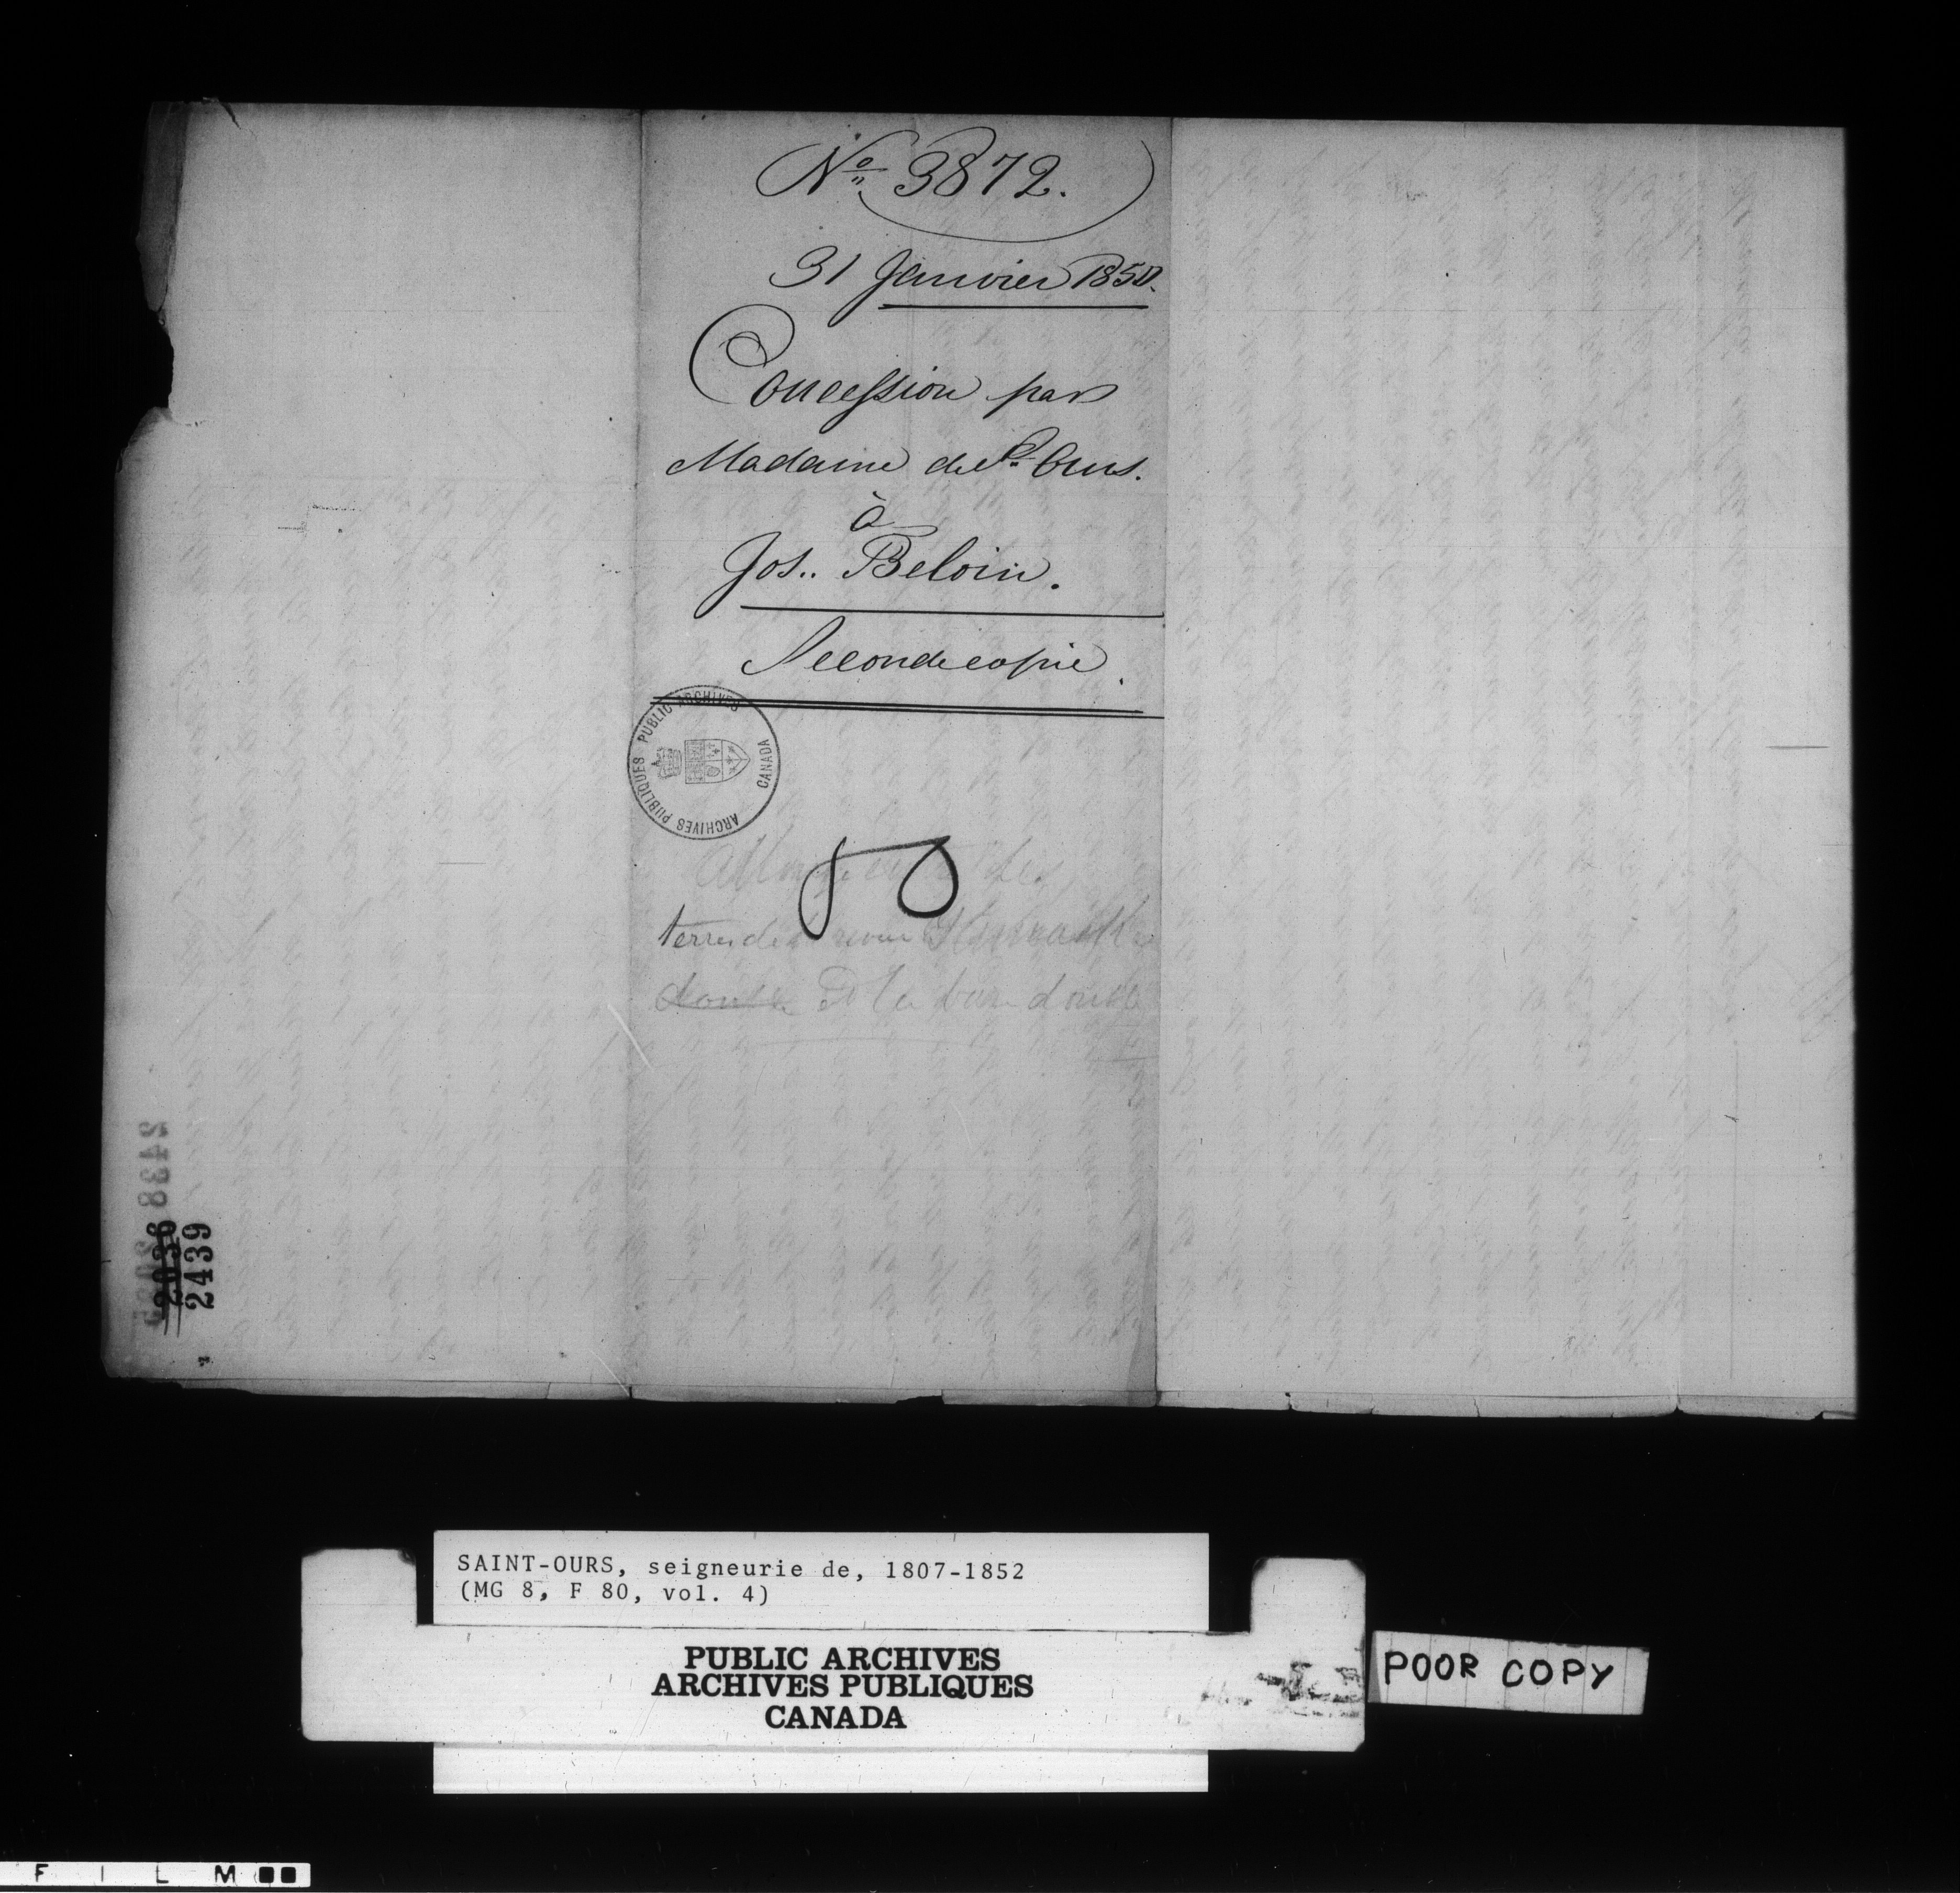 No. 3872.
31 Janvier 1850.
Concession par
Madame de St. Ours.
à
Jos. Beloin.
Seconde copie.
PUBLIC ARCHIVES CANADA
ARCHIVES PUBLIQUES
terres de
double
2438
2036
2439
SAINT-OURS, seigneurie de, 1807-1852
(MG 8, F 80, vol. 4)
PUBLIC ARCHIVES
ARCHIVES PUBLIQUES
CANADA
POOR COPY
FILM